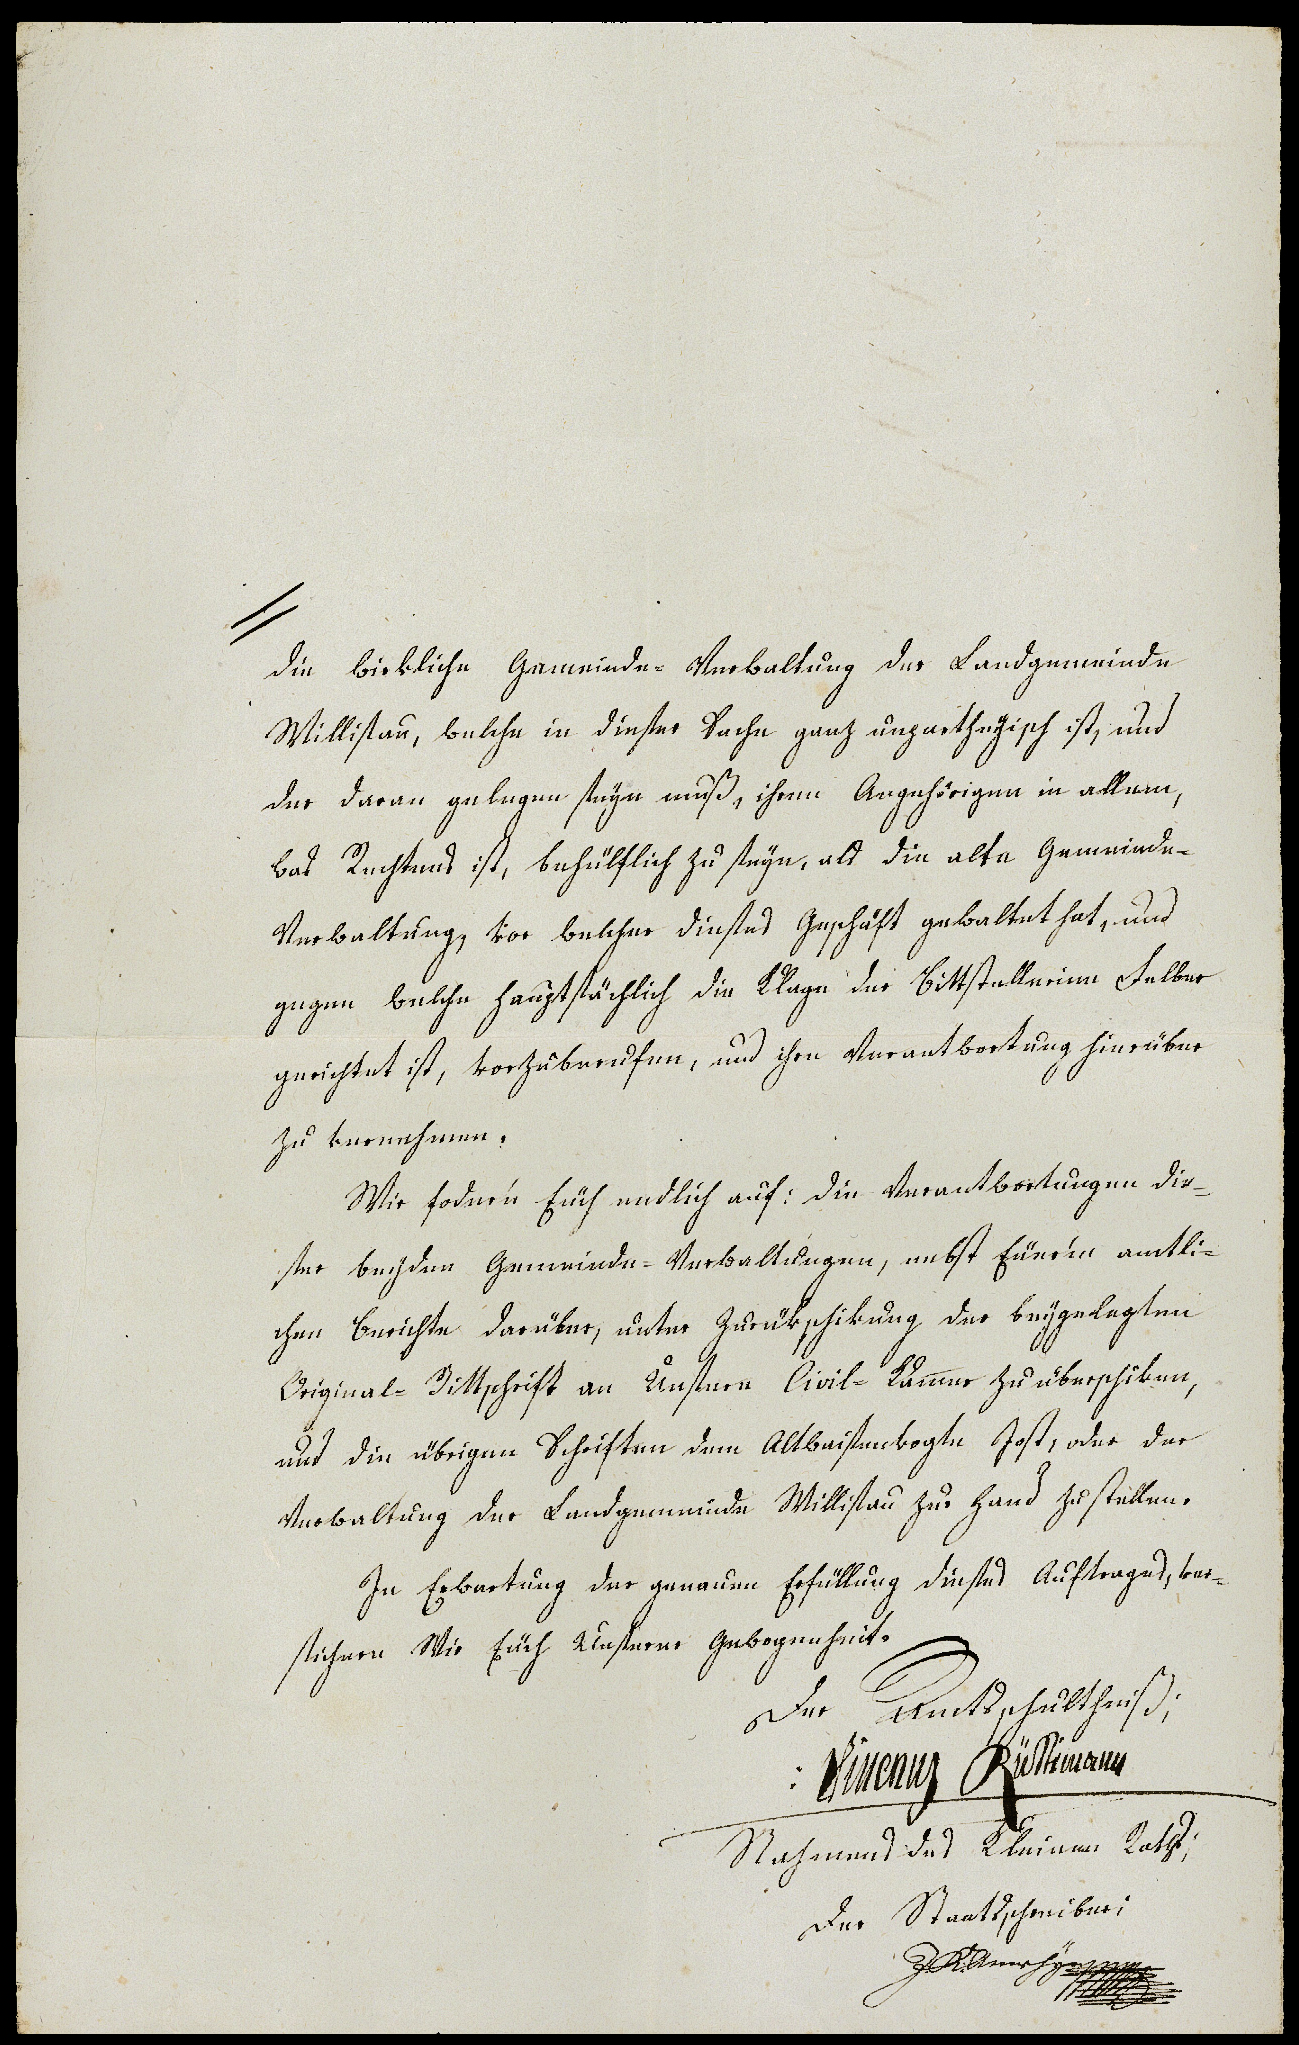 die wirkliche Gemeinde-Verwaltung der Landgemeinde
Willisau, welche in dieser Sache ganz unpartheyisch ist, und
der daran gelegen seyn muß, ihren Angehörigen in allem,
was Rechtens ist, behülflich zu seyn, als die alte Gemeinde-
Verwaltung, vor welcher dieses Geschäft gewaltet hat, und
gegen welche hauptsächlich die Klage der Bittstellerinn Felber
gerichtet ist, vorzuberufen, und ihre Verantwortung hierüber
zu vernehmen.
Wir fodern Euch endlich auf: die Verantwortungen die-
ser beyden Gemeinde-Verwaltungen, nebst Euerm amtli-
chen Berichte darüber, unter Zurükschikung der beygelegten
Original-Bittschrift an Unsere Civil-Kam̅er zu überschiken,
und die übrigen Schriften dem Altwaisenvogte Jost, oder der
Verwaltung der Landgemeinde Willisau zur Hand zu stellen.
In Erwartung der genauen Erfüllung dieses Auftrages, ver-
sichern Wir Euch Unserer Gewogenheit.
Der Amtsschultheiß;
: Vincenz Rüttimann
Nahmens des Kleinen Raths;
Der Staatsschreiber;
J. K. Amrhyn